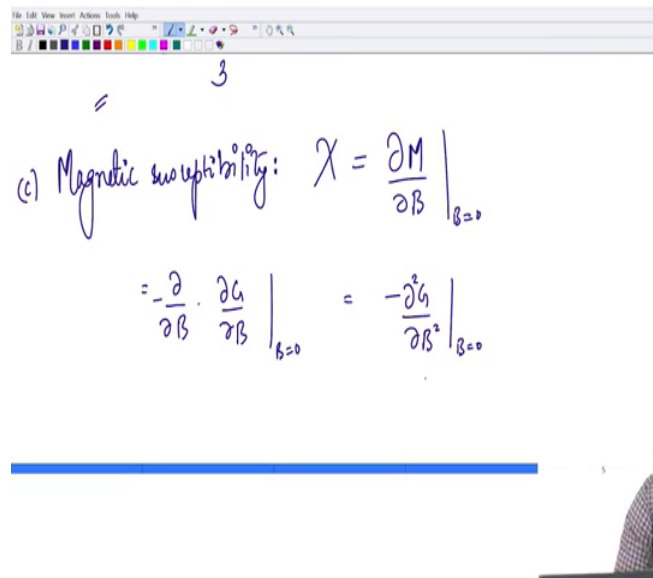 File Edit View Insert Actions Tools Help
B I
3
=
(c) Magnetic susceptibility: χ = ∂M/∂B |_{B=0}
= -∂/∂B · ∂G/∂B |_{B=0} = -∂²G/∂B² |_{B=0}
5